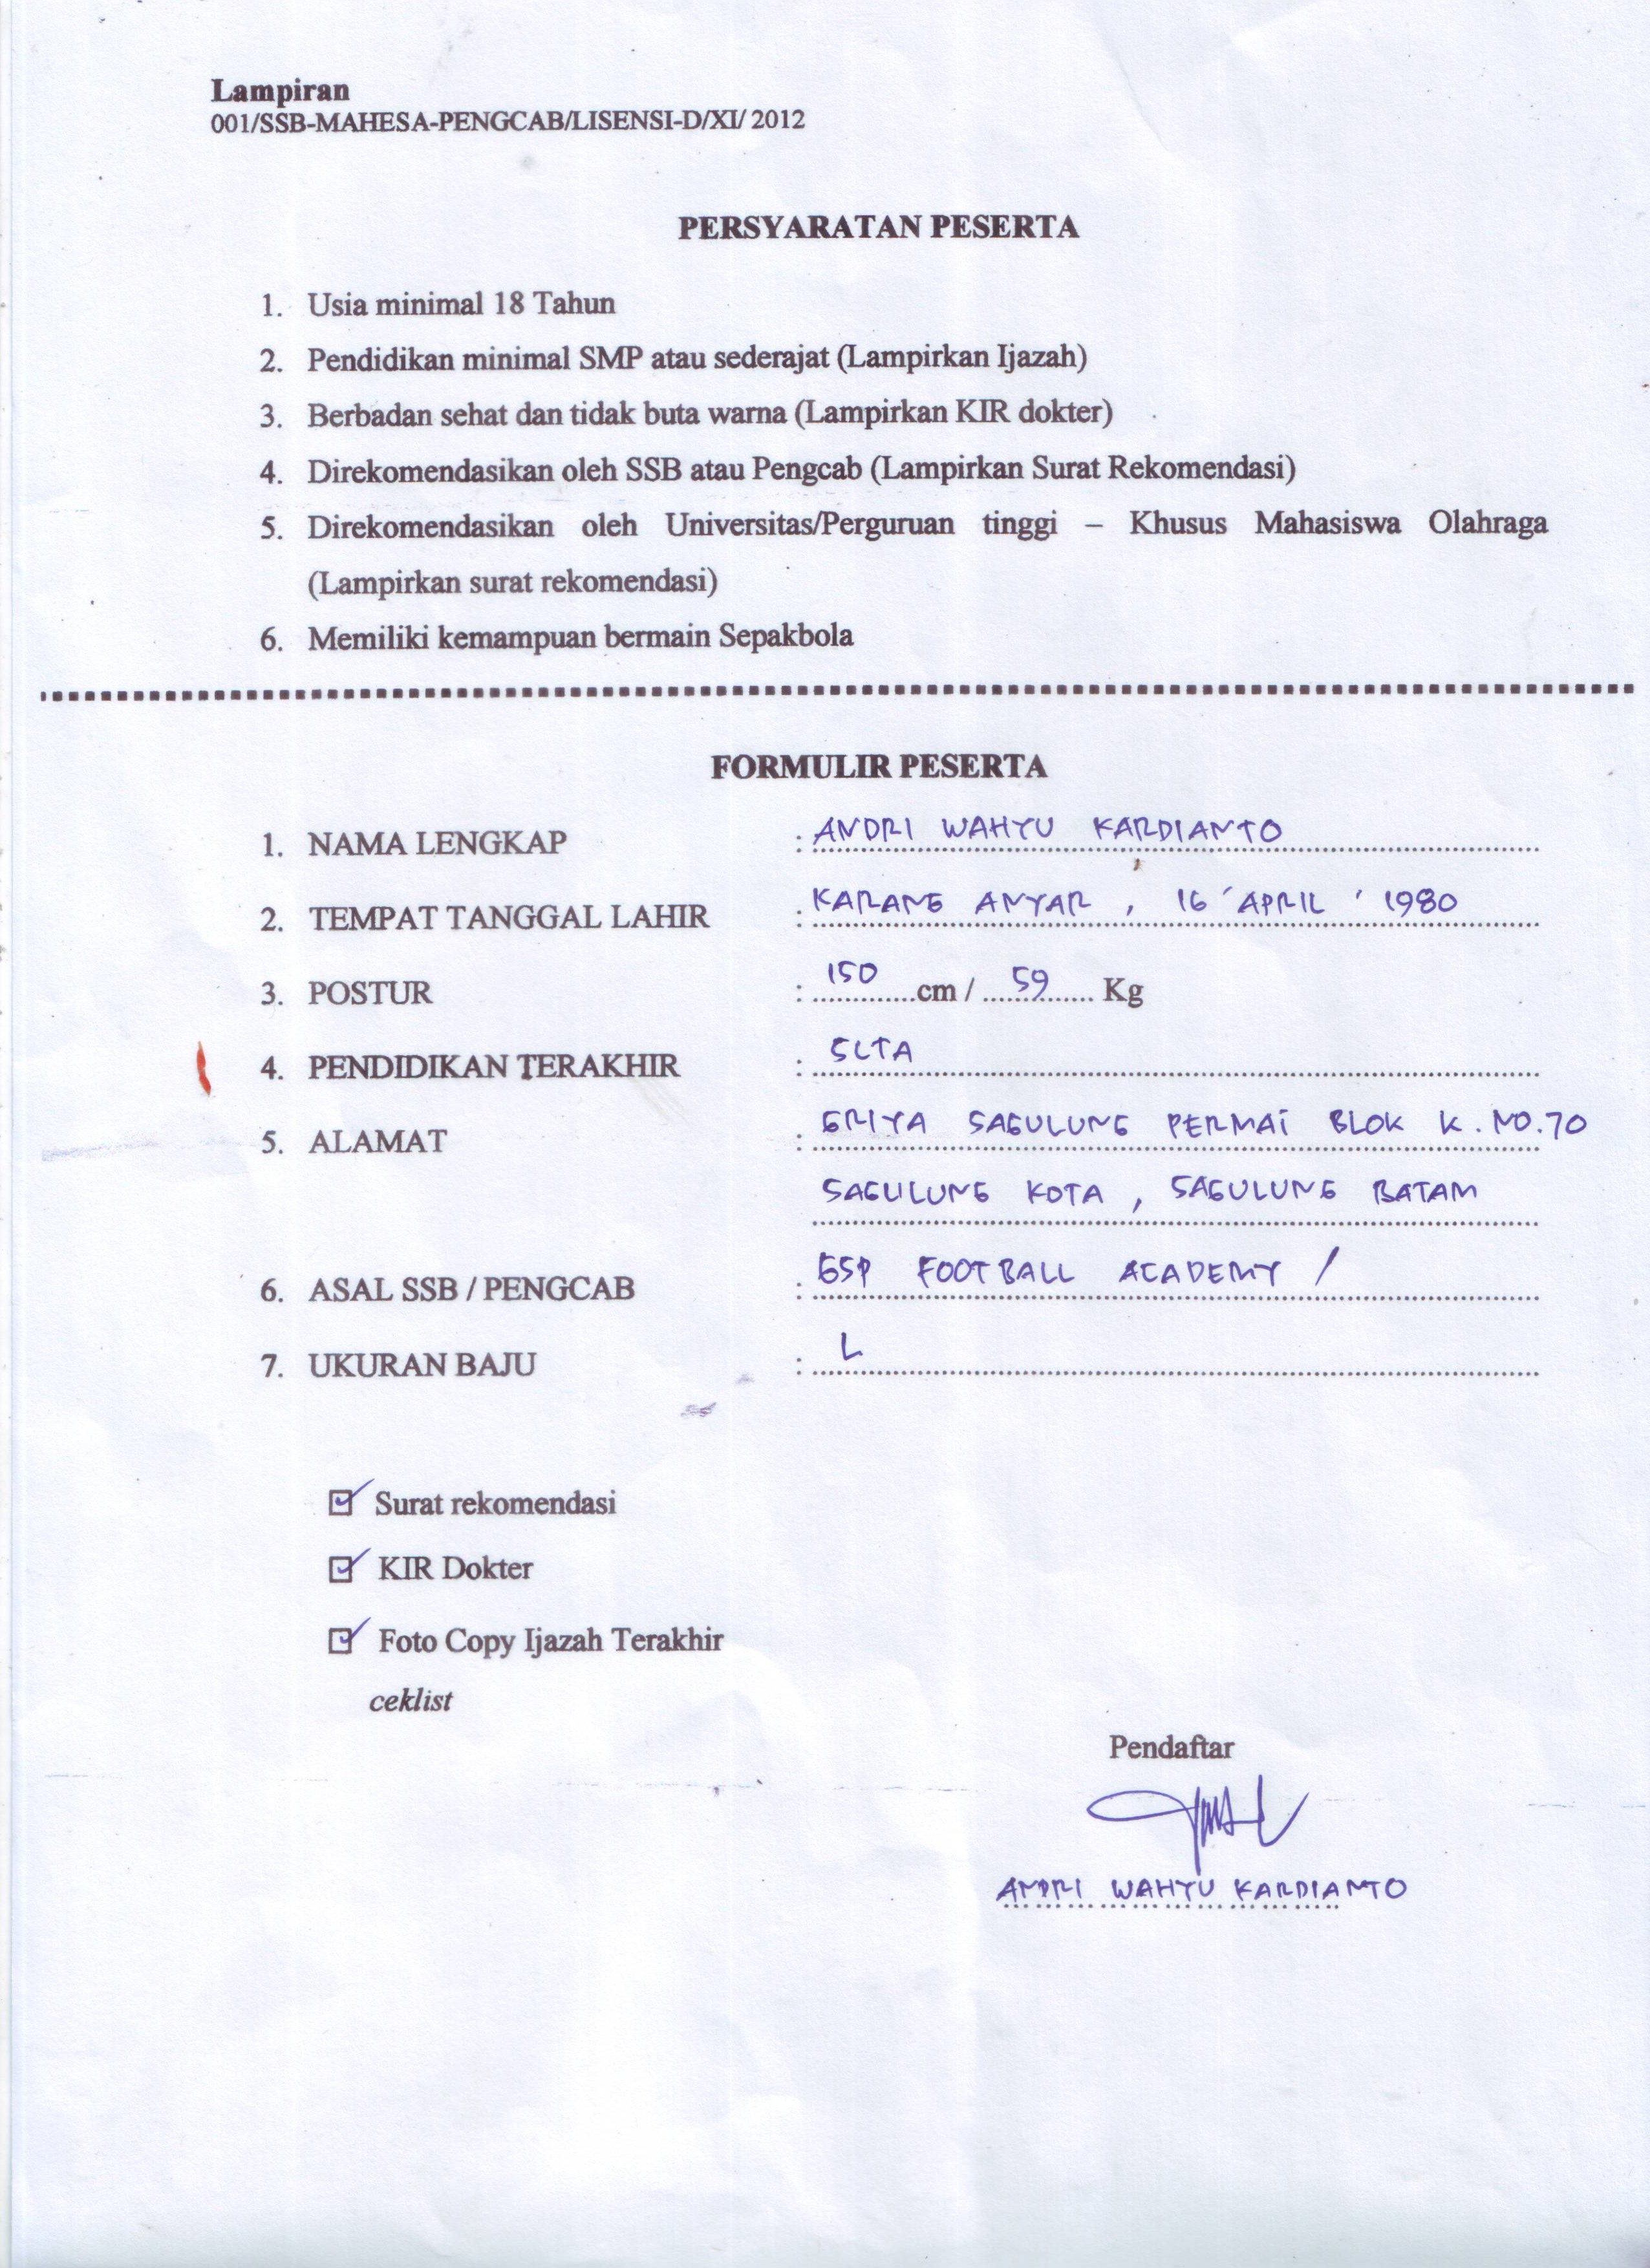 Lampiran
001/SSB-MAHESA-PENGCAB/LISENSI-D/XI/ 2012
PERSYARATAN PESERTA
1. Usia minimal 18 Tahun
2. Pendidikan minimal SMP atau sederajat (Lampirkan Ijazah)
3. Berbadan sehat dan tidak buta warna (Lampirkan KIR dokter)
4. Direkomendasikan oleh SSB atau Pengcab (Lampirkan Surat Rekomendasi)
5. Direkomendasikan oleh Universitas/Perguruan tinggi – Khusus Mahasiswa Olahraga
(Lampirkan surat rekomendasi)
6. Memiliki kemampuan bermain Sepakbola
FORMULIR PESERTA
1. NAMA LENGKAP : ANDRI WAHYU KARDIANTO
2. TEMPAT TANGGAL LAHIR : KARANG ANYAR , 16 ' APRIL ' 1980
3. POSTUR : 150 cm / 59 Kg
4. PENDIDIKAN TERAKHIR : SLTA
5. ALAMAT : GRIYA SAGULUNG PERMAI BLOK K . NO.70
SAGULUNG KOTA , SAGULUNG BATAM
6. ASAL SSB / PENGCAB : GSP FOOTBALL ACADEMY /
7. UKURAN BAJU : L
☑ Surat rekomendasi
☑ KIR Dokter
☑ Foto Copy Ijazah Terakhir
ceklist
Pendaftar
ANDRI WAHYU KARDIANTO